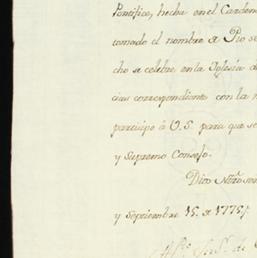 Pontifice, hecha en el Carden
tomado el nombre de Pio se
cho se celebre en la Iglesia d
cias correspondiente con la
participo à V.S. para que se
y Supremo Consejo.
Dios Ntro
y Septiembre 15. de 1775.